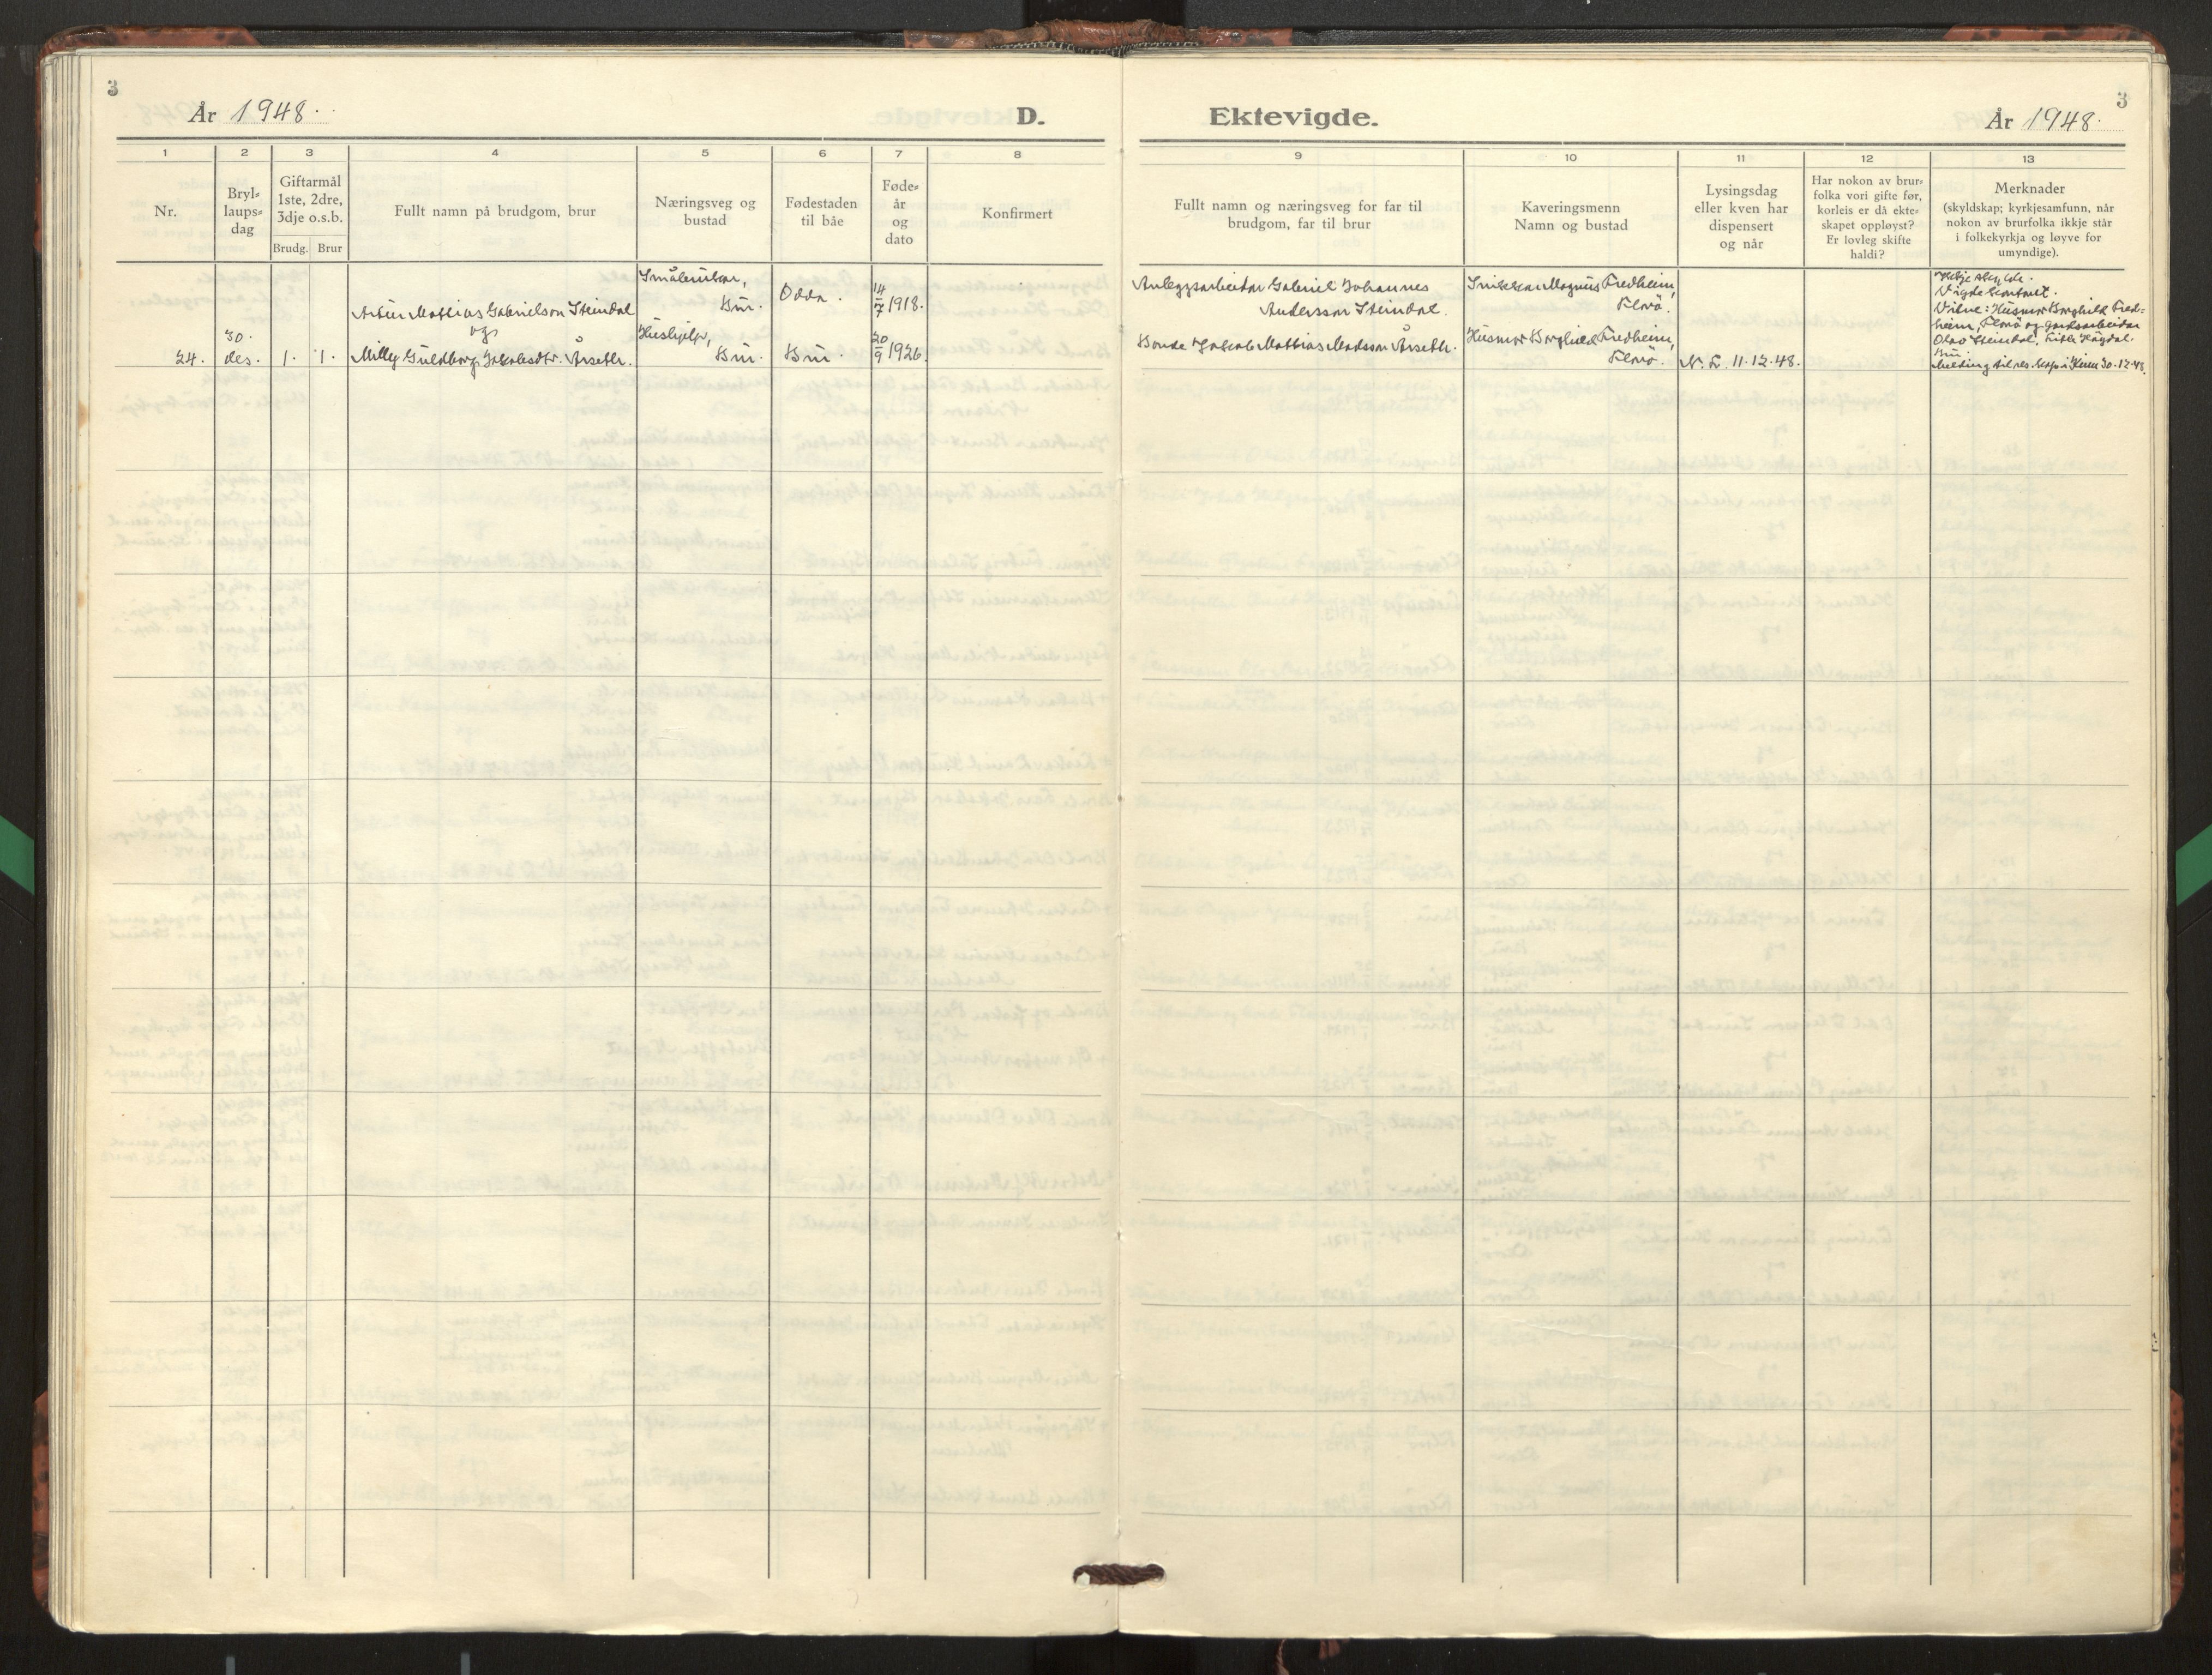 3
År 1948.
D.
Ektevigde.
År 1948.
3
1 2 3 4 5 6 7 8 9 10 11 12 13
Nr.
Bryl=
laups=
dag
Giftarmål
1ste, 2dre,
3dje o.s.b.
Brudg. Brur
Fullt namn på brudgom, brur
Næringsveg og
bustad
Fødestaden
til båe
Føde=
år
og
dato
Konfirmert
Fullt namn og næringsveg for far til
brudgom, far til brur
Kaveringsmenn
Namn og bustad
Lysingsdag
eller kven har
dispensert
og når
Har nokon av brur=
folka vori gifte før,
korleis er då ekte=
skapet oppløyst?
Er lovleg skifte
haldi?
Merknader
(skyldskap; kyrkjesamfunn, når
nokon av brurfolka ikkje står
i folkekyrkja og løyve for
umyndige).
24.
30.
des.
1. 1.
Artur Mattias Gabrielson Steindal
og
Milly Guldborg Jakobsdtr. Årseth.
Bru.
Hushjelp,
Bru.
Odda.
Bru.
14/7 1918.
20/9 1926.
Anleggsarbeidar Gabriel Johannes
Andersson Steindal.
Bonde Jakob Mattias Madsson Årseth.
Snikkar Magnus Fredheim,
Florø.
Husmor Borghild Fredheim,
Florø.
N. F. 11.12.48.
Ikkje skylde.
Vigde
Vitne: Husmor Borghild Fred-
heim, Florø og gardsarbeidar
Olav Steindal,
Bru.
Melding til res. kap. i Kinn 30.12.48.